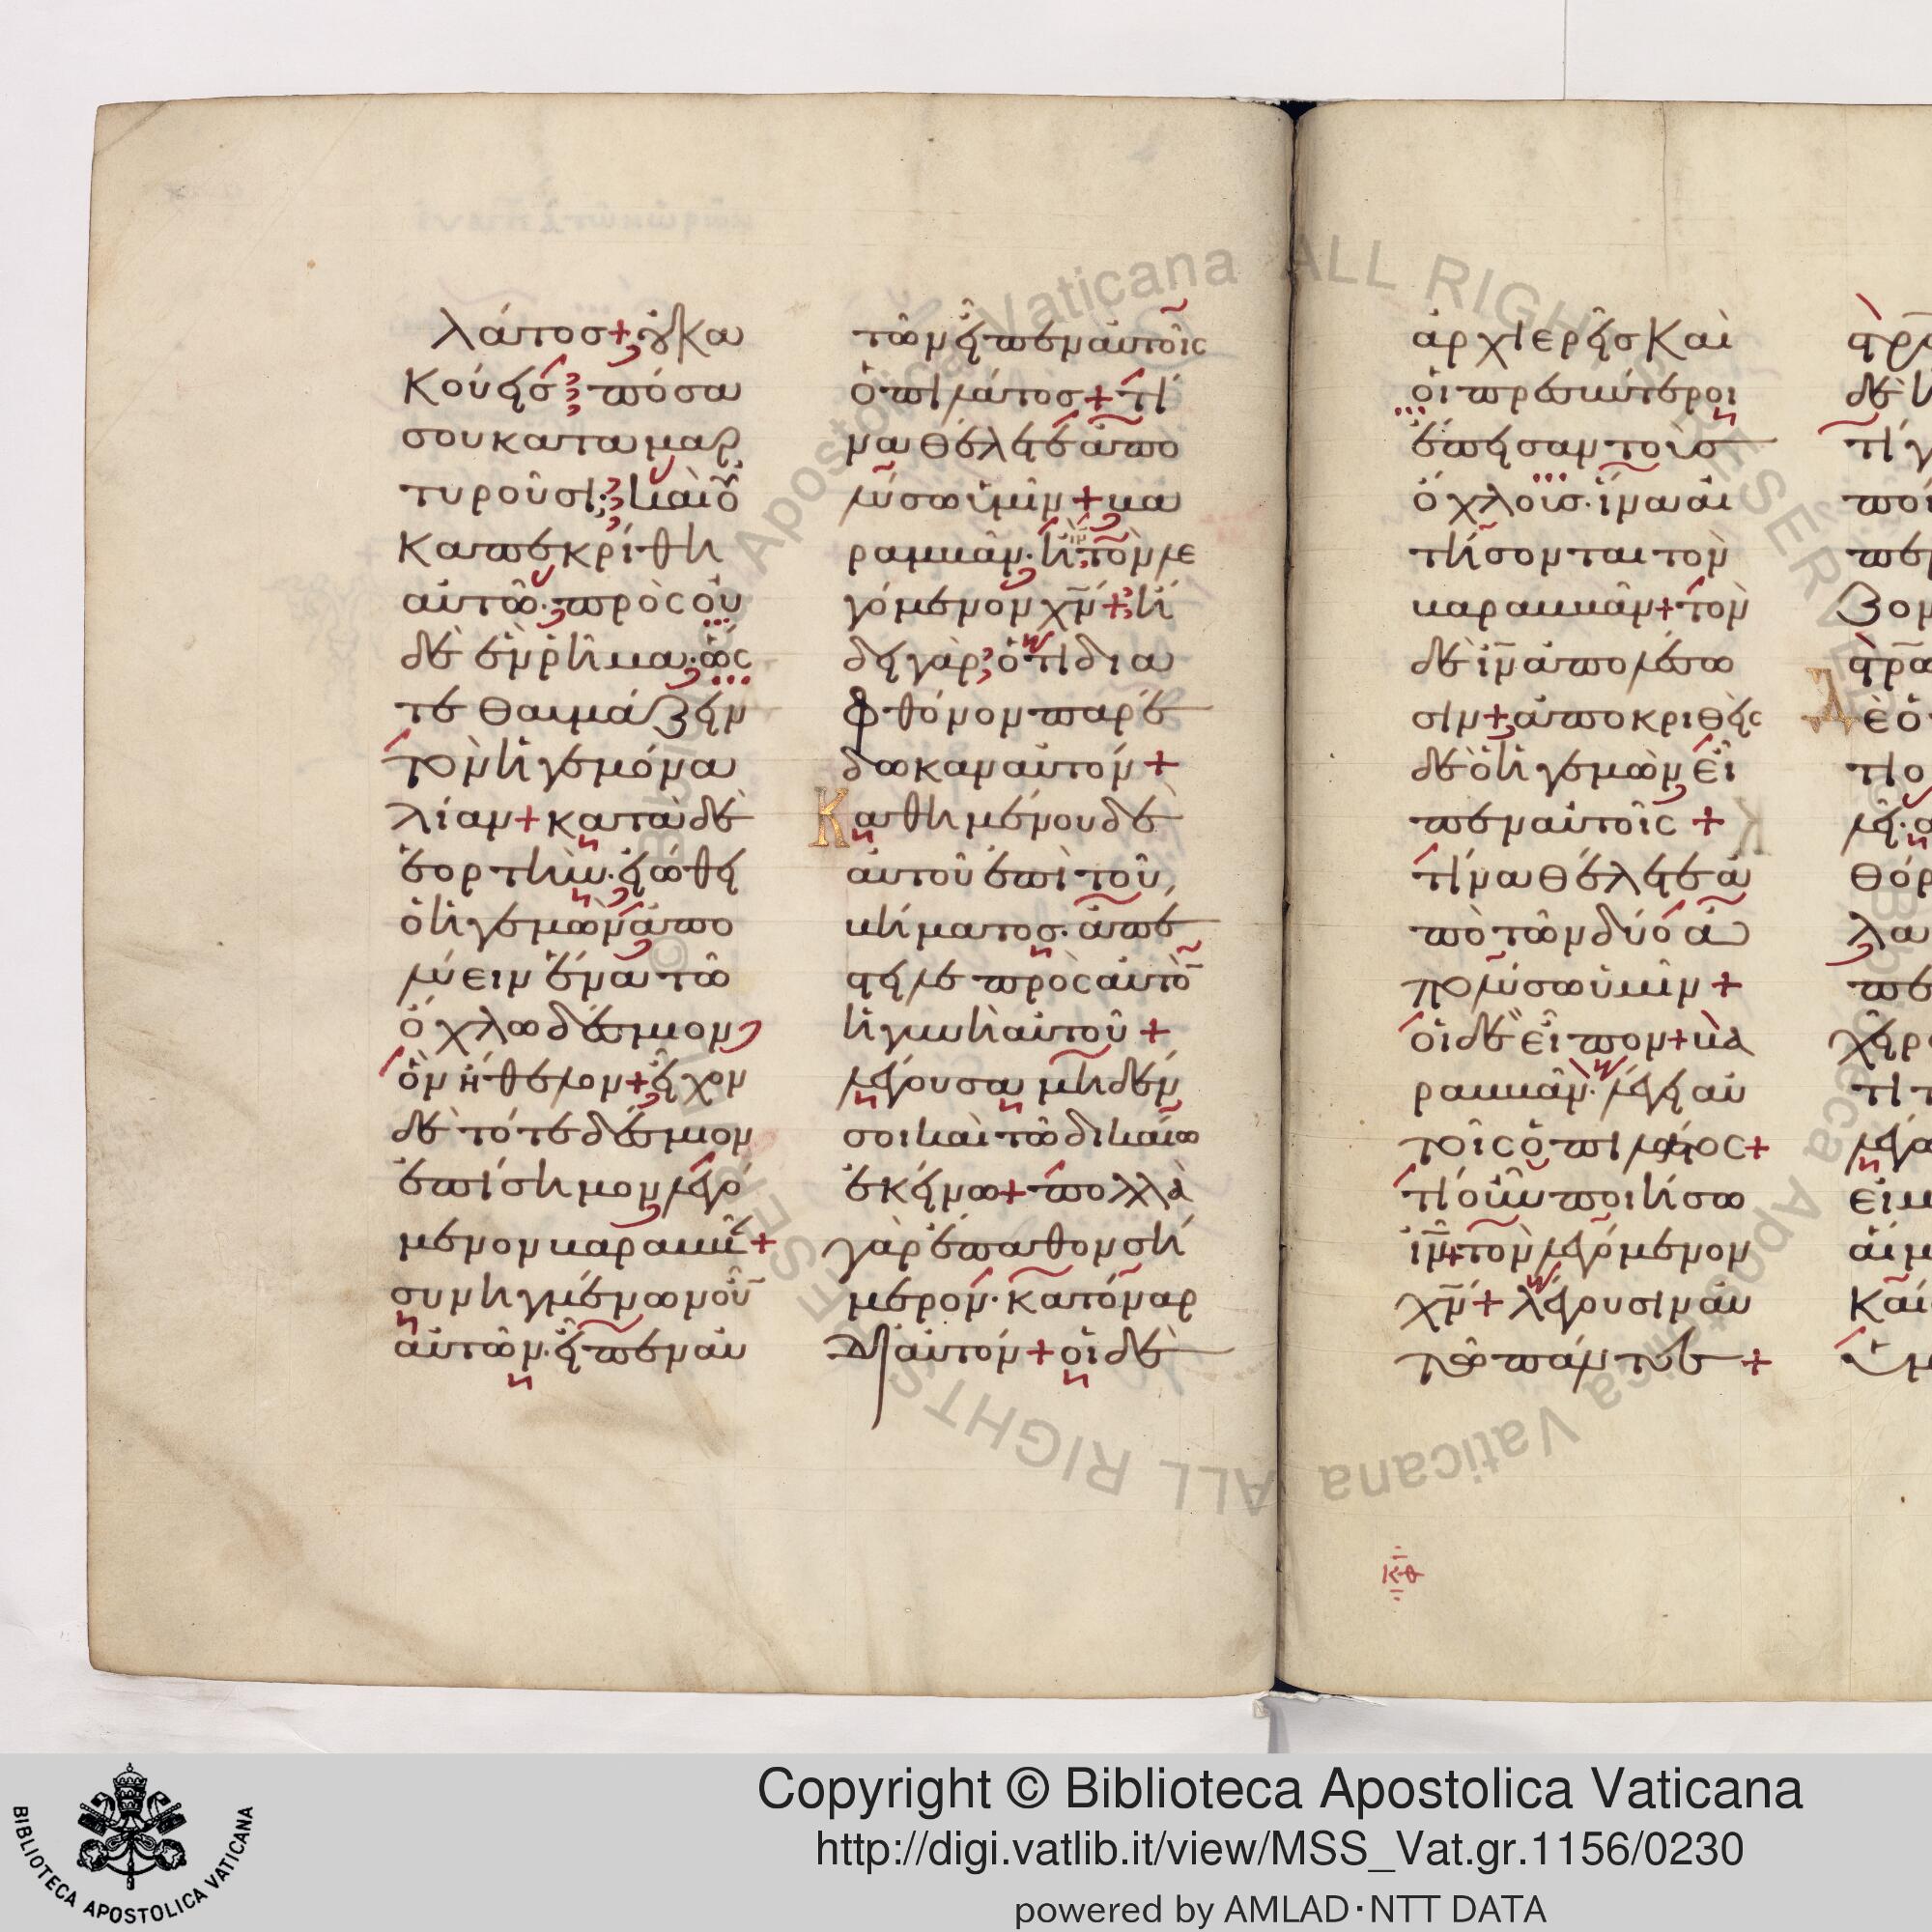 λάτος + οὐκ ἀ
κούεις πόσα
σου καταμαρ
τυροῦσι· καὶ οὐ
κ ἀπεκρίθη
αὐτῶ· πρὸς οὐ
δὲ ἓν ῥῆμα· ὥς
τε θαυμάζειν
τὸν ἡγεμόνα
λίαν + κατὰ δὲ
ἑορτὴν· εἰώθει
ὁ ἡγεμὼν ἀπο
λύειν ἕνα τῶ
ὄχλω δέσμιον
ὃν ἤθελον + εἶχον
δὲ τότε δέσμιον
ἐπίσημον λεγό
μενον βαραββᾶν +
συνηγμένων οὖν
αὐτῶν· εἶπεν αὐ
τῶν εἶπεν αὐτοῖς
ὁ πιλάτος + τί
να θέλετε ἀπο
λύσω ὑμῖν + βα
ραββᾶν· ἢ ιν τὸν λε
γόμενον χν + ἤ
δει γὰρ ὅτι δια
φθόνον παρέ
δωκαν αὐτόν +
Καθημένου δὲ
αὐτοῦ ἐπὶ τοῦ
βήματος· ἀπέ
στειλε πρὸς αὐτὸ
ἡ γυνὴ αὐτοῦ +
λέγουσα μηδέν
σοι καὶ τῶ δικαίω
ἐκείνω + πολλὰ
γὰρ ἔπαθον σή
μερον· κατόναρ
δι αὐτόν + οἱ δὲ
ἀρχιερεῖς καὶ
οἱ πρεσβύτεροι
ἔπεισαν τοὺς
ὄχλοις· ἵνα αἰ
τήσονται τὸν
βαραββᾶν + τὸν
δὲ ιν ἀπολέσω
σιν + ἀποκριθεὶς
δὲ ὁ ἡγεμὼν εἶ
πεν αὐτοῖς +
τίνα θέλετε ἀ
πὸ τῶν δύο ἀ
πολύσω ὑμῖν +
οἱ δὲ εἶπον + βα
ραββᾶν· λέγει αὐ
τοῖς ὁ πιλάτος +
τί οὖν ποιήσω
ιν + τὸν λεγόμενον
χν + λέγουσιν αὐ
τῶ πάντες +
κθ
BIBLIOTECA APOSTOLICA VATICANA
Copyright © Biblioteca Apostolica Vaticana
http://digi.vatlib.it/view/MSS_Vat.gr.1156/0230
powered by AMLAD·NTT DATA